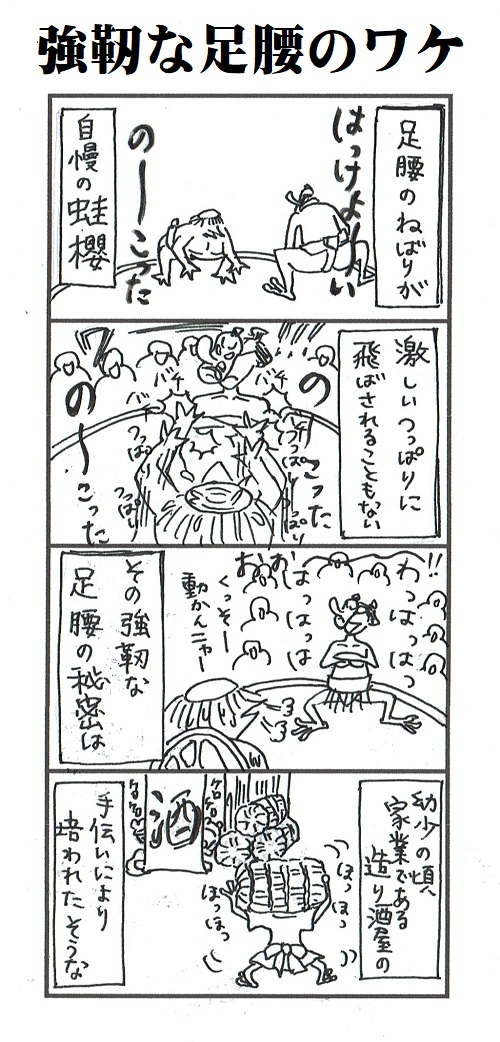 強靭な足腰のワケ
足腰のねばりが
はっけよーい
のーこった
自慢の蛙櫻
激しいつっぱりに
飛ばされることもない
のこった
のーこった
バチ
バチ
バチ
つっぱり
つっぱり
つっぱり
わっはっはっ
!!
はっはっは
おお
くっそー
動かんニャー
その強靭な
足腰の秘密は
幼少の頃、
家業である
造り酒屋の
ほっほっ
ほっほっ
酒
手伝いにより
培われたそうな